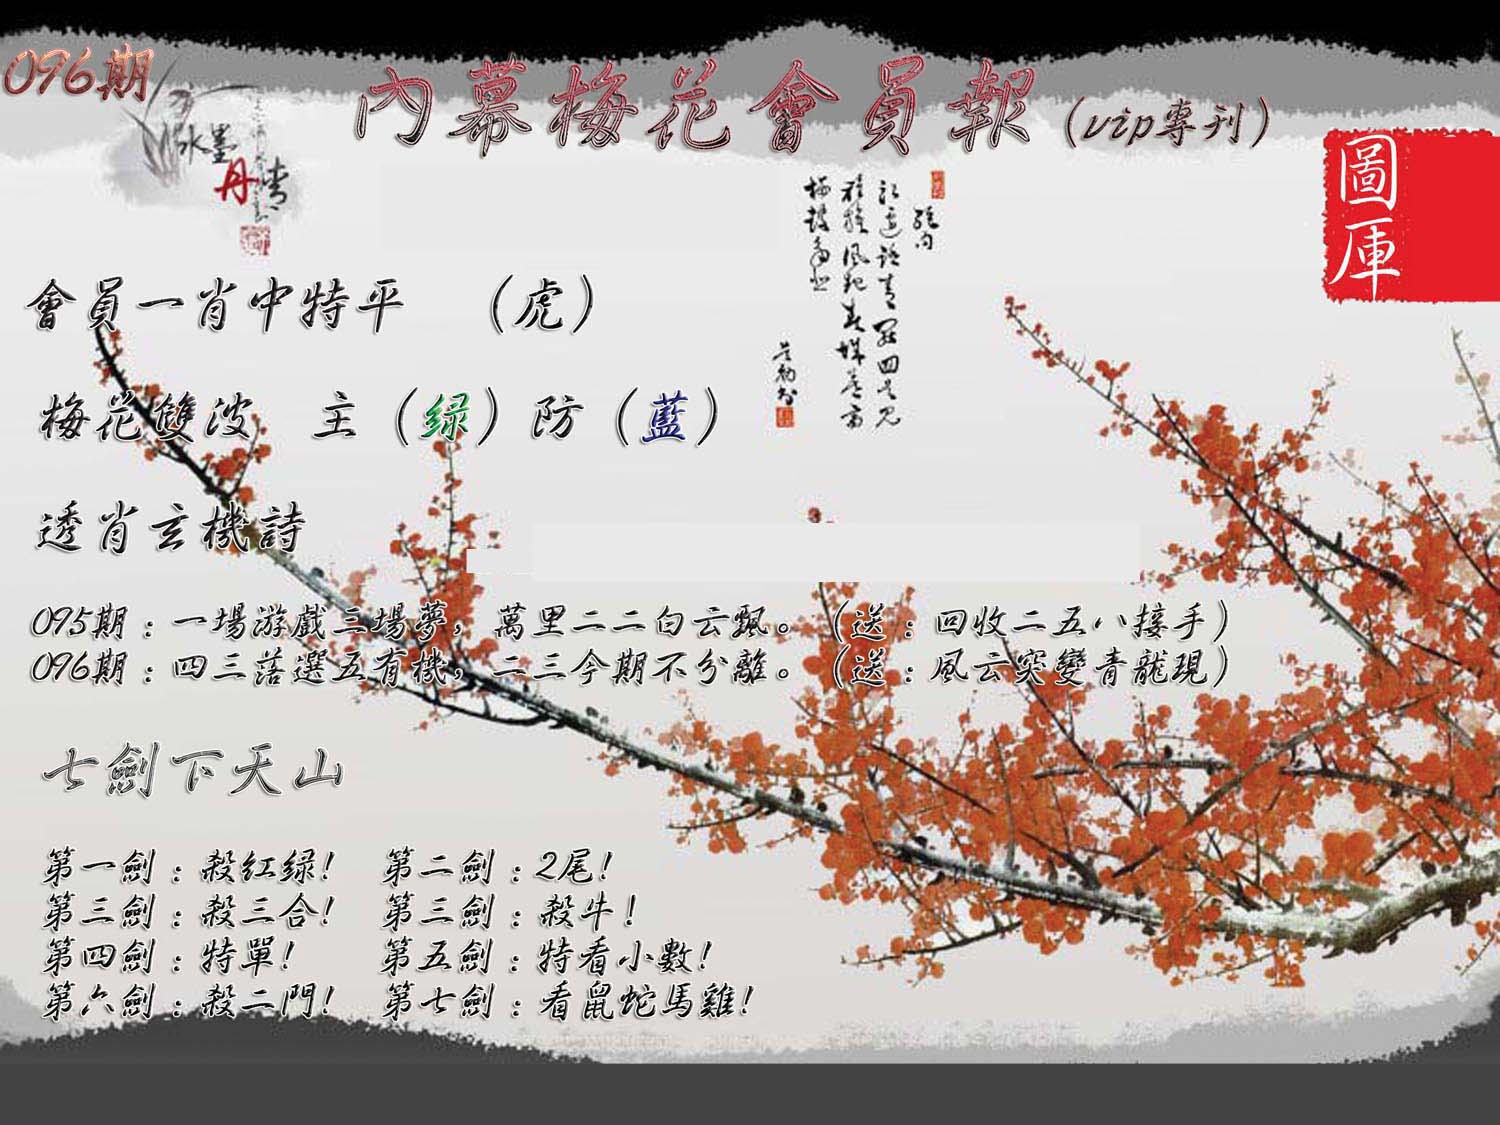 096期
內幕梅花會員報（vip專刊）
水墨
丹情
圖庫
會員一肖中特平　（虎）
梅花雙波　主（绿）防（藍）
透肖玄機詩
095期：一場游戲三場夢，萬里二二白云飄。（送：回收二五八接手）
096期：四三落選五有機，二三今期不分離。（送：風云突變青龍現）
七劍下天山
第一劍：殺紅绿！　第二劍：2尾！
第三劍：殺三合！　第三劍：殺牛！
第四劍：特單！　第五劍：特看小數！
第六劍：殺二門！　第七劍：看鼠蛇馬雞！